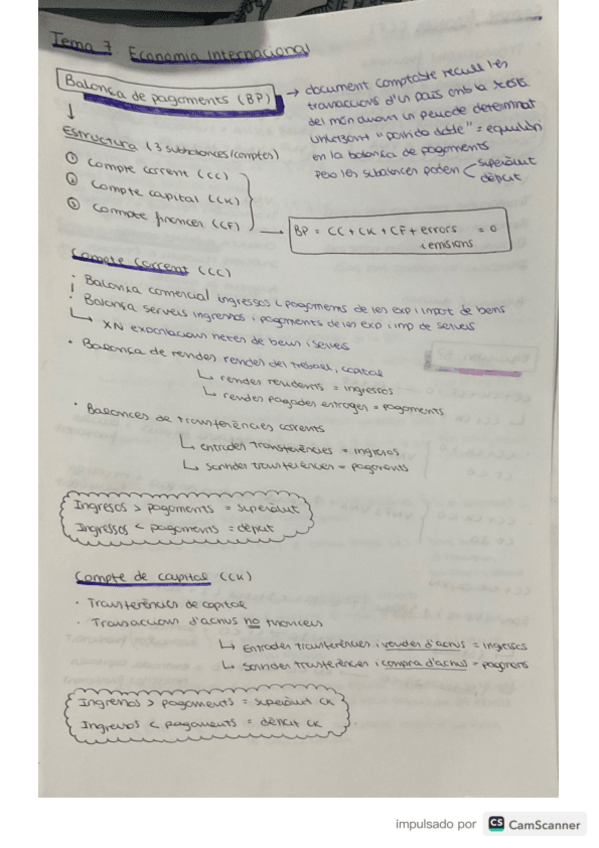 Tema 7. Economia Internacional
Balança de pagaments (BP)
→ document comptable recull les
transaccions d'un país amb la resta
del món durant un període determinat
utilitzant "partida doble" = equilibri
en la balança de pagaments
però les subbalances poden < superàvit
dèficit
↓
Estructura (3 subbalances/comptes)
① Compte corrent (CC)
② Compte capital (CK)
③ Compte financer (CF)
→ BP = CC + CK + CF + errors = 0
i emisions
Compte corrent (CC)
· Balança comercial ingressos i pagaments de les exp i import de bens
· Balança serveis ingressos i pagaments de les exp i imp de serveis
↳ XN exportacions netes de bens i serveis
· Balança de rendes rendes del treball, capital
↳ rendes residents = ingressos
↳ rendes pagades estranger = pagaments
· Balances de transferències corrents
↳ entrades transferències = ingressos
↳ sortides transferències = pagaments
Ingresos > pagaments = superàvit
Ingressos < pagaments = dèficit
Compte de capital (CK)
· Transferències de capital
· Transaccions d'actius no financers
↳ Entrades transferències i vendes d'actius = ingressos
↳ Sortides transferències i compra d'actius = pagaments
Ingressos > pagaments = superàvit CK
Ingressos < pagaments = dèficit CK
impulsado por CS CamScanner